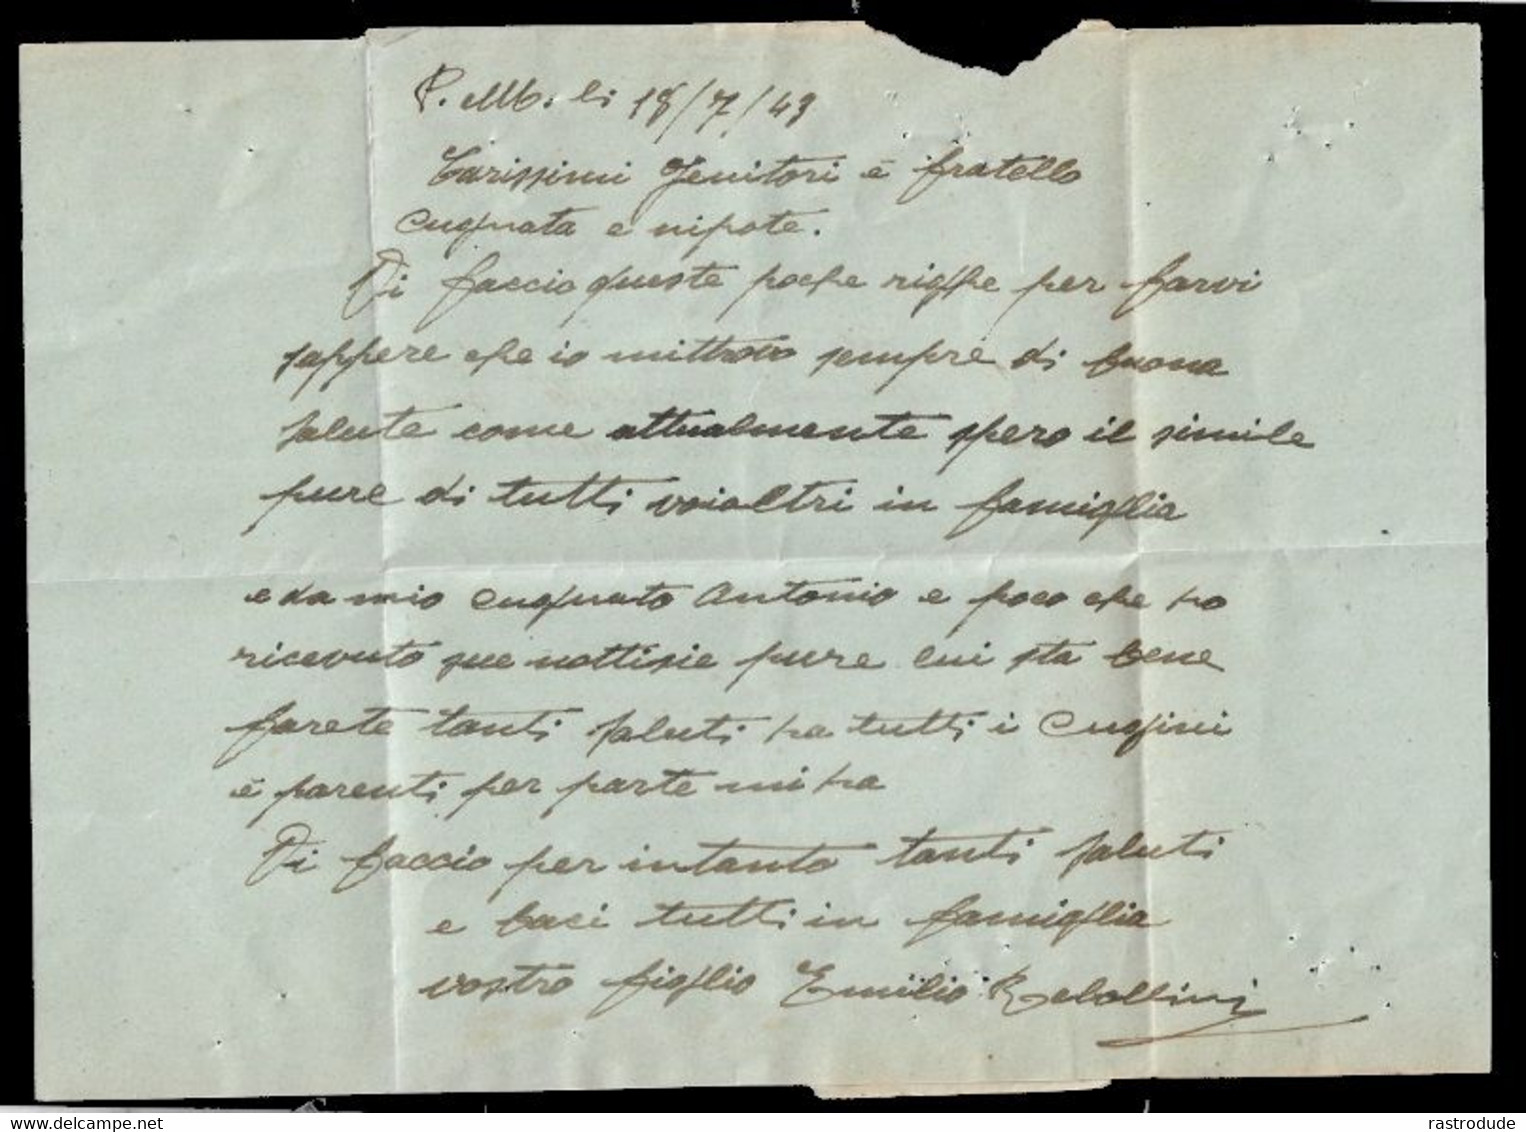 P. M. li 18/7/43
Carissimi Genitori e fratello
Cugnata e nipote.
Vi faccio queste poche righe per farvi
sappere che io mi sempre di buona
salute come attualmente spero il simile
pure di tutti voialtri in famiglia
e da mio Cugnato Antonio e poco che ho
ricevuto sue nottisie pure lui sta bene
farete tanti saluti ha tutti i Cugini
e parenti per parte mi ha
Vi faccio per intanto tanti saluti
e baci tutti in famiglia
vostro figlio Emilio Rebollini
rastrodude